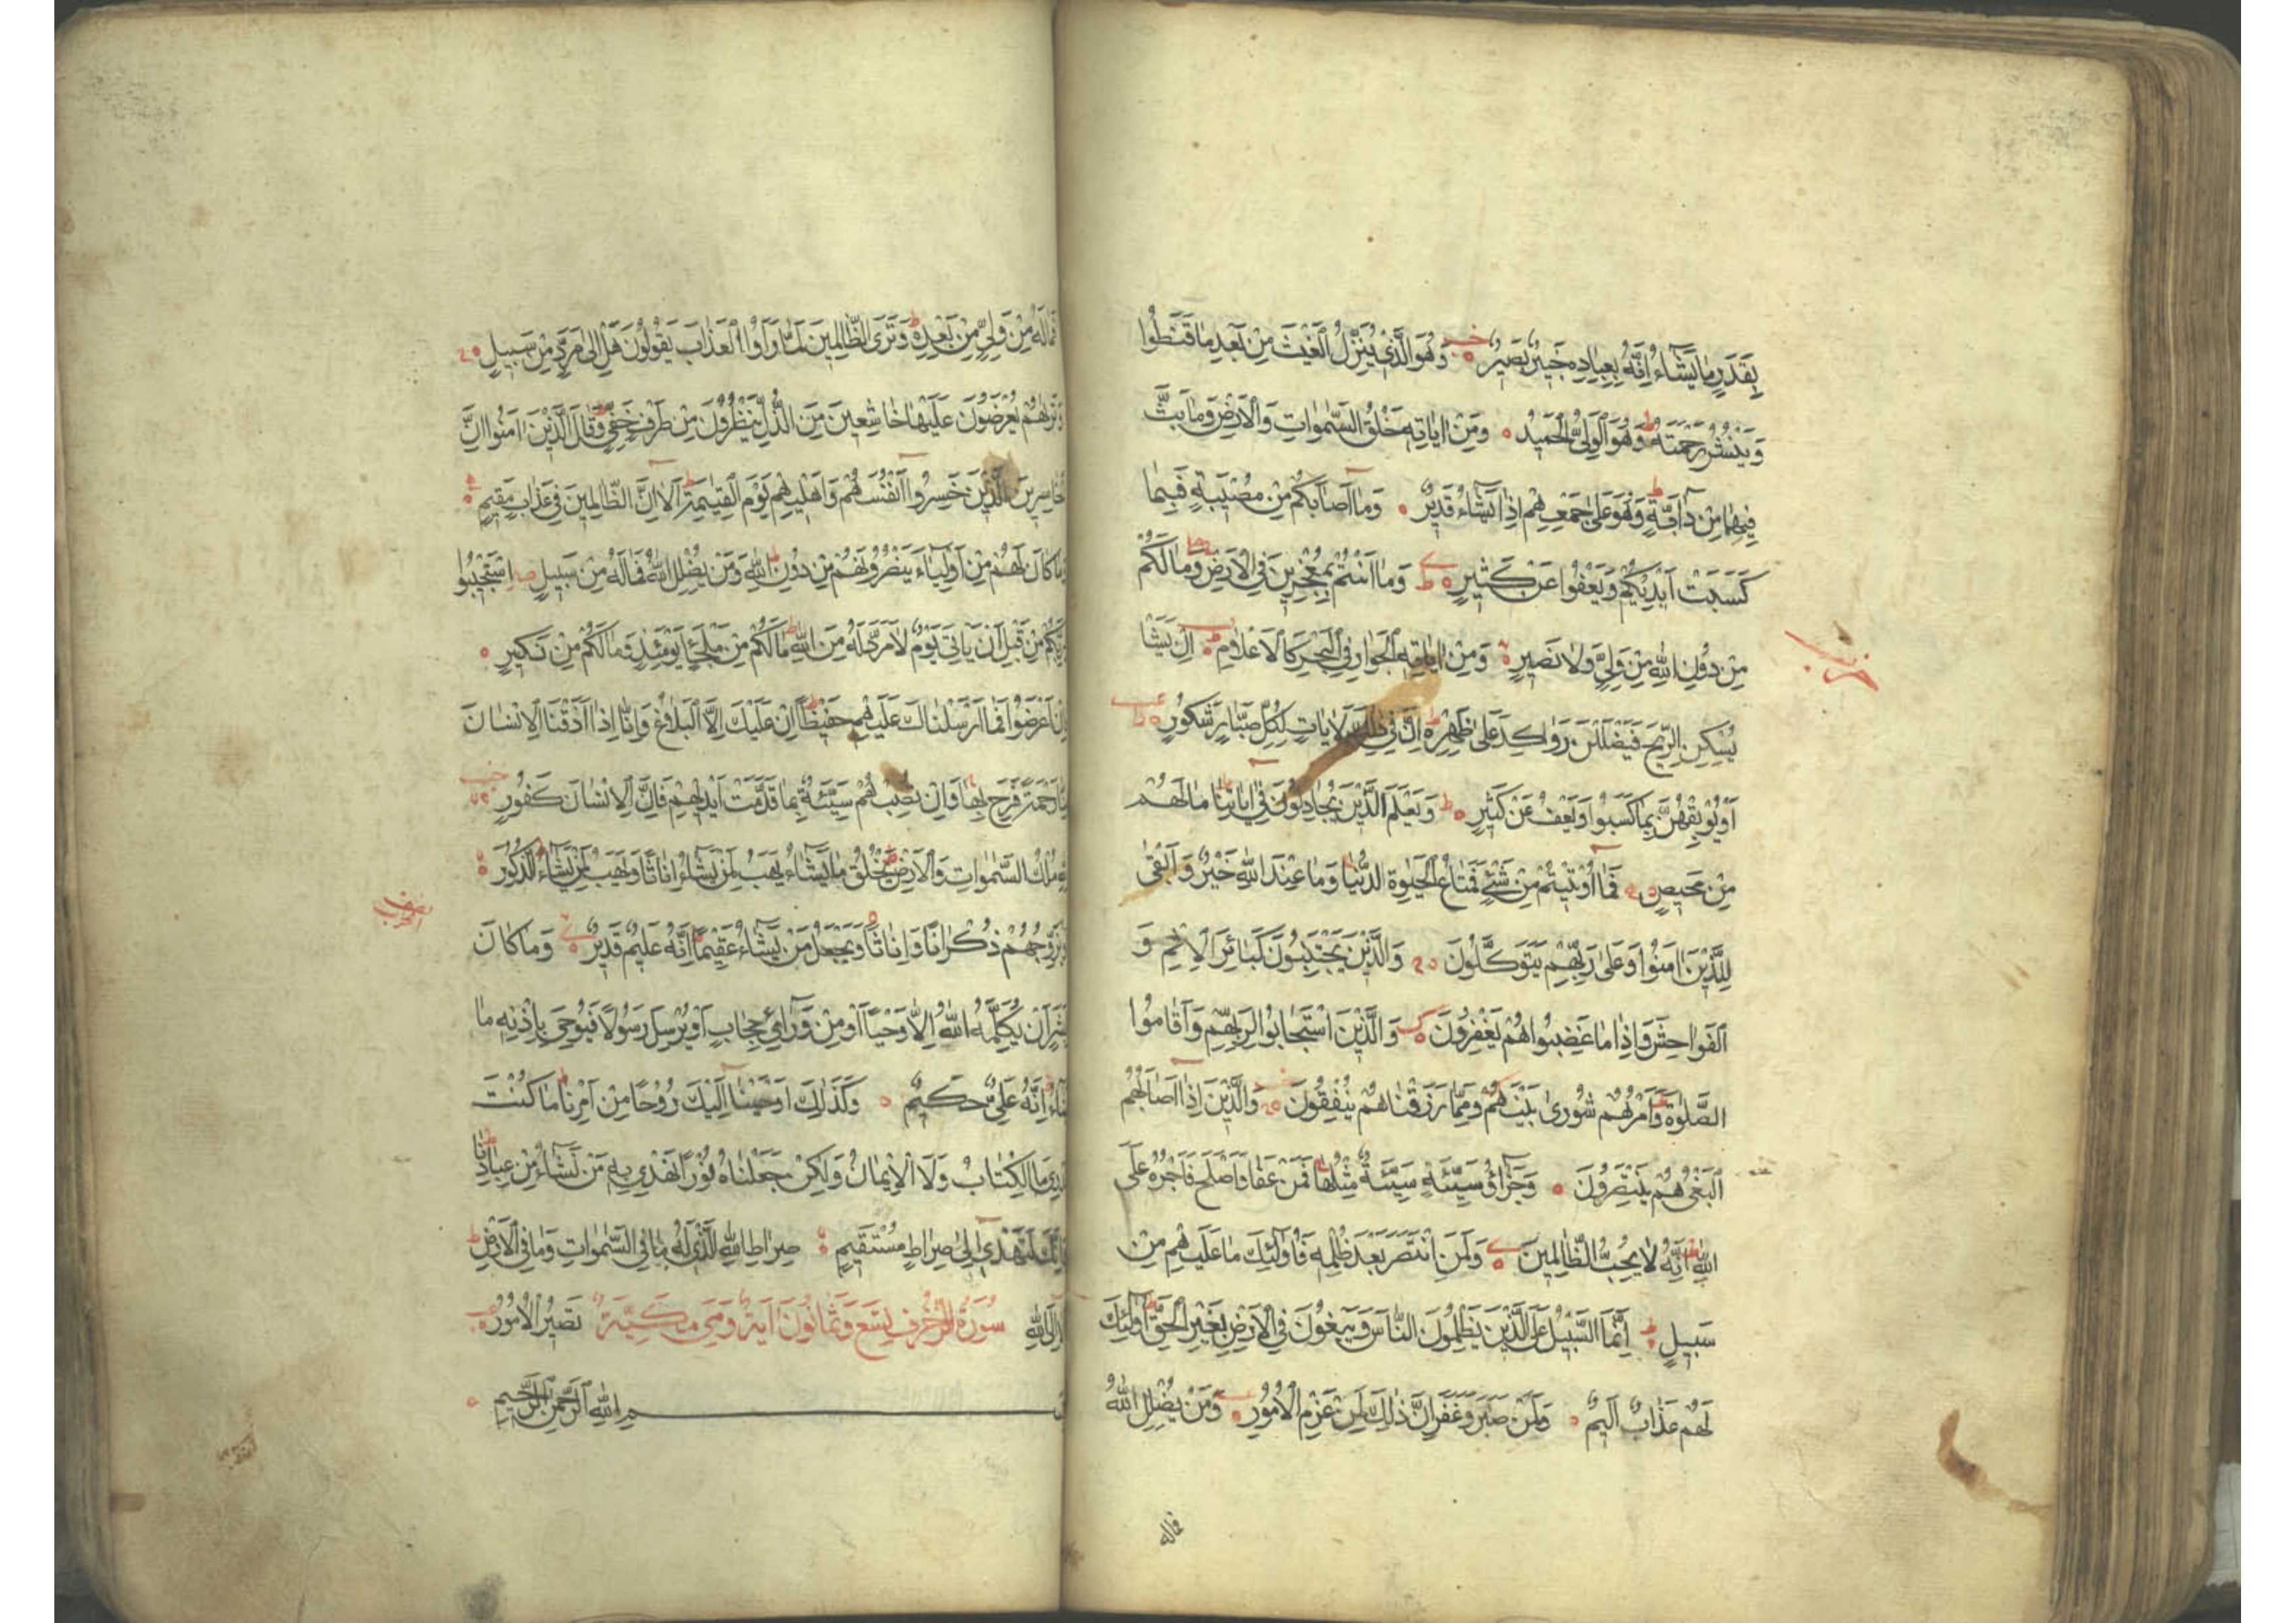 بِقَدَرٍ مَا يَشَاءُ اِنَّهُ بِعِبَادِهِ خَبِيرٌ بَصِيرٌ وَهُوَ الَّذِي يُنَزِّلُ الْغَيْثَ مِنْ بَعْدِ مَا قَنَطُوا
وَيَنْشُرُ رَحْمَتَهُ وَهُوَ الْوَلِيُّ الْحَمِيدُ وَمِنْ اٰيَاتِهِ خَلْقُ السَّمٰوَاتِ وَالْاَرْضِ وَمَا بَثَّ
فِيهِمَا مِنْ دَابَّةٍ وَهُوَ عَلٰى جَمْعِهِمْ اِذَا يَشَاءُ قَدِيرٌ وَمَا اَصَابَكُمْ مِنْ مُصِيبَةٍ فَبِمَا
كَسَبَتْ اَيْدِيكُمْ وَيَعْفُوا عَنْ كَثِيرٍ وَمَا اَنْتُمْ بِمُعْجِزِينَ فِي الْاَرْضِ وَمَا لَكُمْ
مِنْ دُونِ اللّٰهِ مِنْ وَلِيٍّ وَلَا نَصِيرٍ وَمِنْ اٰيَاتِهِ الْجَوَارِ فِي الْبَحْرِ كَالْاَعْلَامِ اِنْ يَشَا
حزب
يُسْكِنِ الرِّيحَ فَيَضْلَلْنَ رَوَاكِدَ عَلٰى ظَهْرِهِ اِنَّ فِي ذٰلِكَ لَاٰيَاتٍ لِكُلِّ صَبَّارٍ شَكُورٍ
اَوْ يُوبِقْهُنَّ بِمَا كَسَبُوا وَيَعْفُ عَنْ كَثِيرٍ وَيَعْلَمَ الَّذِينَ يُجَادِلُونَ فِي اٰيَاتِنَا مَا لَهُمْ
مِنْ مَحِيصٍ فَمَا اُوتِيتُمْ مِنْ شَيْءٍ فَمَتَاعُ الْحَيٰوةِ الدُّنْيَا وَمَا عِنْدَ اللّٰهِ خَيْرٌ وَاَبْقٰى
لِلَّذِينَ اٰمَنُوا وَعَلٰى رَبِّهِمْ يَتَوَكَّلُونَ وَالَّذِينَ يَجْتَنِبُونَ كَبَائِرَ الْاِثْمِ وَ
الْفَوَاحِشَ وَاِذَا مَا غَضِبُوا هُمْ يَغْفِرُونَ وَالَّذِينَ اسْتَجَابُوا لِرَبِّهِمْ وَاَقَامُوا
الصَّلٰوةَ وَاَمْرُهُمْ شُورٰى بَيْنَهُمْ وَمِمَّا رَزَقْنَاهُمْ يُنْفِقُونَ وَالَّذِينَ اِذَا اَصَابَهُمُ
الْبَغْيُ هُمْ يَنْتَصِرُونَ وَجَزٰٓؤُ سَيِّئَةٍ سَيِّئَةٌ مِثْلُهَا فَمَنْ عَفَا وَاَصْلَحَ فَاَجْرُهُ عَلَى
اللّٰهِ اِنَّهُ لَا يُحِبُّ الظَّالِمِينَ وَلَمَنِ انْتَصَرَ بَعْدَ ظُلْمِهِ فَاُولٰئِكَ مَا عَلَيْهِمْ مِنْ
سَبِيلٍ اِنَّمَا السَّبِيلُ عَلَى الَّذِينَ يَظْلِمُونَ النَّاسَ وَيَبْغُونَ فِي الْاَرْضِ بِغَيْرِ الْحَقِّ اُولٰئِكَ
لَهُمْ عَذَابٌ اَلِيمٌ وَلَمَنْ صَبَرَ وَغَفَرَ اِنَّ ذٰلِكَ لَمِنْ عَزْمِ الْاُمُورِ وَمَنْ يُضْلِلِ اللّٰهُ
فماله
فَمَا لَهُ مِنْ وَلِيٍّ مِنْ بَعْدِهِ وَتَرَى الظَّالِمِينَ لَمَّا رَاَوُا الْعَذَابَ يَقُولُونَ هَلْ اِلٰى مَرَدٍّ مِنْ سَبِيلٍ
وَتَرٰيهُمْ يُعْرَضُونَ عَلَيْهَا خَاشِعِينَ مِنَ الذُّلِّ يَنْظُرُونَ مِنْ طَرْفٍ خَفِيٍّ وَقَالَ الَّذِينَ اٰمَنُوا اِنَّ
الْخَاسِرِينَ الَّذِينَ خَسِرُوا اَنْفُسَهُمْ وَاَهْلِيهِمْ يَوْمَ الْقِيٰمَةِ اَلَا اِنَّ الظَّالِمِينَ فِي عَذَابٍ مُقِيمٍ
وَمَا كَانَ لَهُمْ مِنْ اَوْلِيَاءَ يَنْصُرُونَهُمْ مِنْ دُونِ اللّٰهِ وَمَنْ يُضْلِلِ اللّٰهُ فَمَا لَهُ مِنْ سَبِيلٍ اِسْتَجِيبُوا
لِرَبِّكُمْ مِنْ قَبْلِ اَنْ يَاْتِيَ يَوْمٌ لَا مَرَدَّ لَهُ مِنَ اللّٰهِ مَا لَكُمْ مِنْ مَلْجَاٍ يَوْمَئِذٍ وَمَا لَكُمْ مِنْ نَكِيرٍ
فَاِنْ اَعْرَضُوا فَمَا اَرْسَلْنَاكَ عَلَيْهِمْ حَفِيظًا اِنْ عَلَيْكَ اِلَّا الْبَلَاغُ وَاِنَّا اِذَا اَذَقْنَا الْاِنْسَانَ
مِنَّا رَحْمَةً فَرِحَ بِهَا وَاِنْ تُصِبْهُمْ سَيِّئَةٌ بِمَا قَدَّمَتْ اَيْدِيهِمْ فَاِنَّ الْاِنْسَانَ كَفُورٌ
لِلّٰهِ مُلْكُ السَّمٰوَاتِ وَالْاَرْضِ يَخْلُقُ مَا يَشَاءُ يَهَبُ لِمَنْ يَشَاءُ اِنَاثًا وَيَهَبُ لِمَنْ يَشَاءُ الذُّكُورَ
نصف الحزب
اَوْ يُزَوِّجُهُمْ ذُكْرَانًا وَاِنَاثًا وَيَجْعَلُ مَنْ يَشَاءُ عَقِيمًا اِنَّهُ عَلِيمٌ قَدِيرٌ وَمَا كَانَ
لِبَشَرٍ اَنْ يُكَلِّمَهُ اللّٰهُ اِلَّا وَحْيًا اَوْ مِنْ وَرَائِ حِجَابٍ اَوْ يُرْسِلَ رَسُولًا فَيُوحِيَ بِاِذْنِهِ مَا
يَشَاءُ اِنَّهُ عَلِيٌّ حَكِيمٌ وَكَذٰلِكَ اَوْحَيْنَا اِلَيْكَ رُوحًا مِنْ اَمْرِنَا مَا كُنْتَ
تَدْرِي مَا الْكِتَابُ وَلَا الْاِيمَانُ وَلٰكِنْ جَعَلْنَاهُ نُورًا نَهْدِي بِهِ مَنْ نَشَاءُ مِنْ عِبَادِنَا
وَاِنَّكَ لَتَهْدِي اِلٰى صِرَاطٍ مُسْتَقِيمٍ صِرَاطِ اللّٰهِ الَّذِي لَهُ مَا فِي السَّمٰوَاتِ وَمَا فِي الْاَرْضِ
اَلَا اِلَى اللّٰهِ سُورَةُ الزُّخْرُفِ تِسْعٌ وَثَمَانُونَ اٰيَةً وَهِيَ مَكِّيَّةٌ تَصِيرُ الْاُمُورُ
بِسْمِ اللّٰهِ الرَّحْمٰنِ الرَّحِيمِ